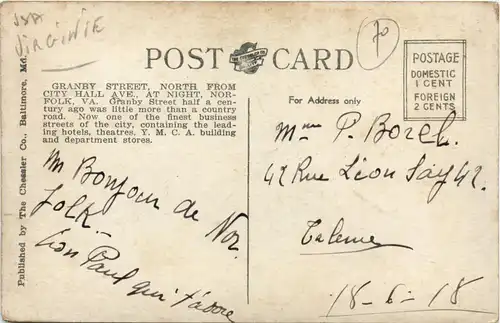 USA
VIRGINIE
70
POST CARD
POSTAGE
DOMESTIC
1 CENT
FOREIGN
2 CENTS
Published by The Chessler Co., Baltimore, Md.
GRANBY STREET, NORTH FROM
CITY HALL AVE., AT NIGHT, NOR-
FOLK, VA. Granby Street half a cen-
tury ago was little more than a country
road. Now one of the finest business
streets of the city, containing the lead-
ing hotels, theatres, Y. M. C. A. building
and department stores.
Un Bonjour de Nor
folk
ton Paul qui t'adore
For Address only
Mme P. Borch.
42 Rue Léon Say 42.
18-6-18